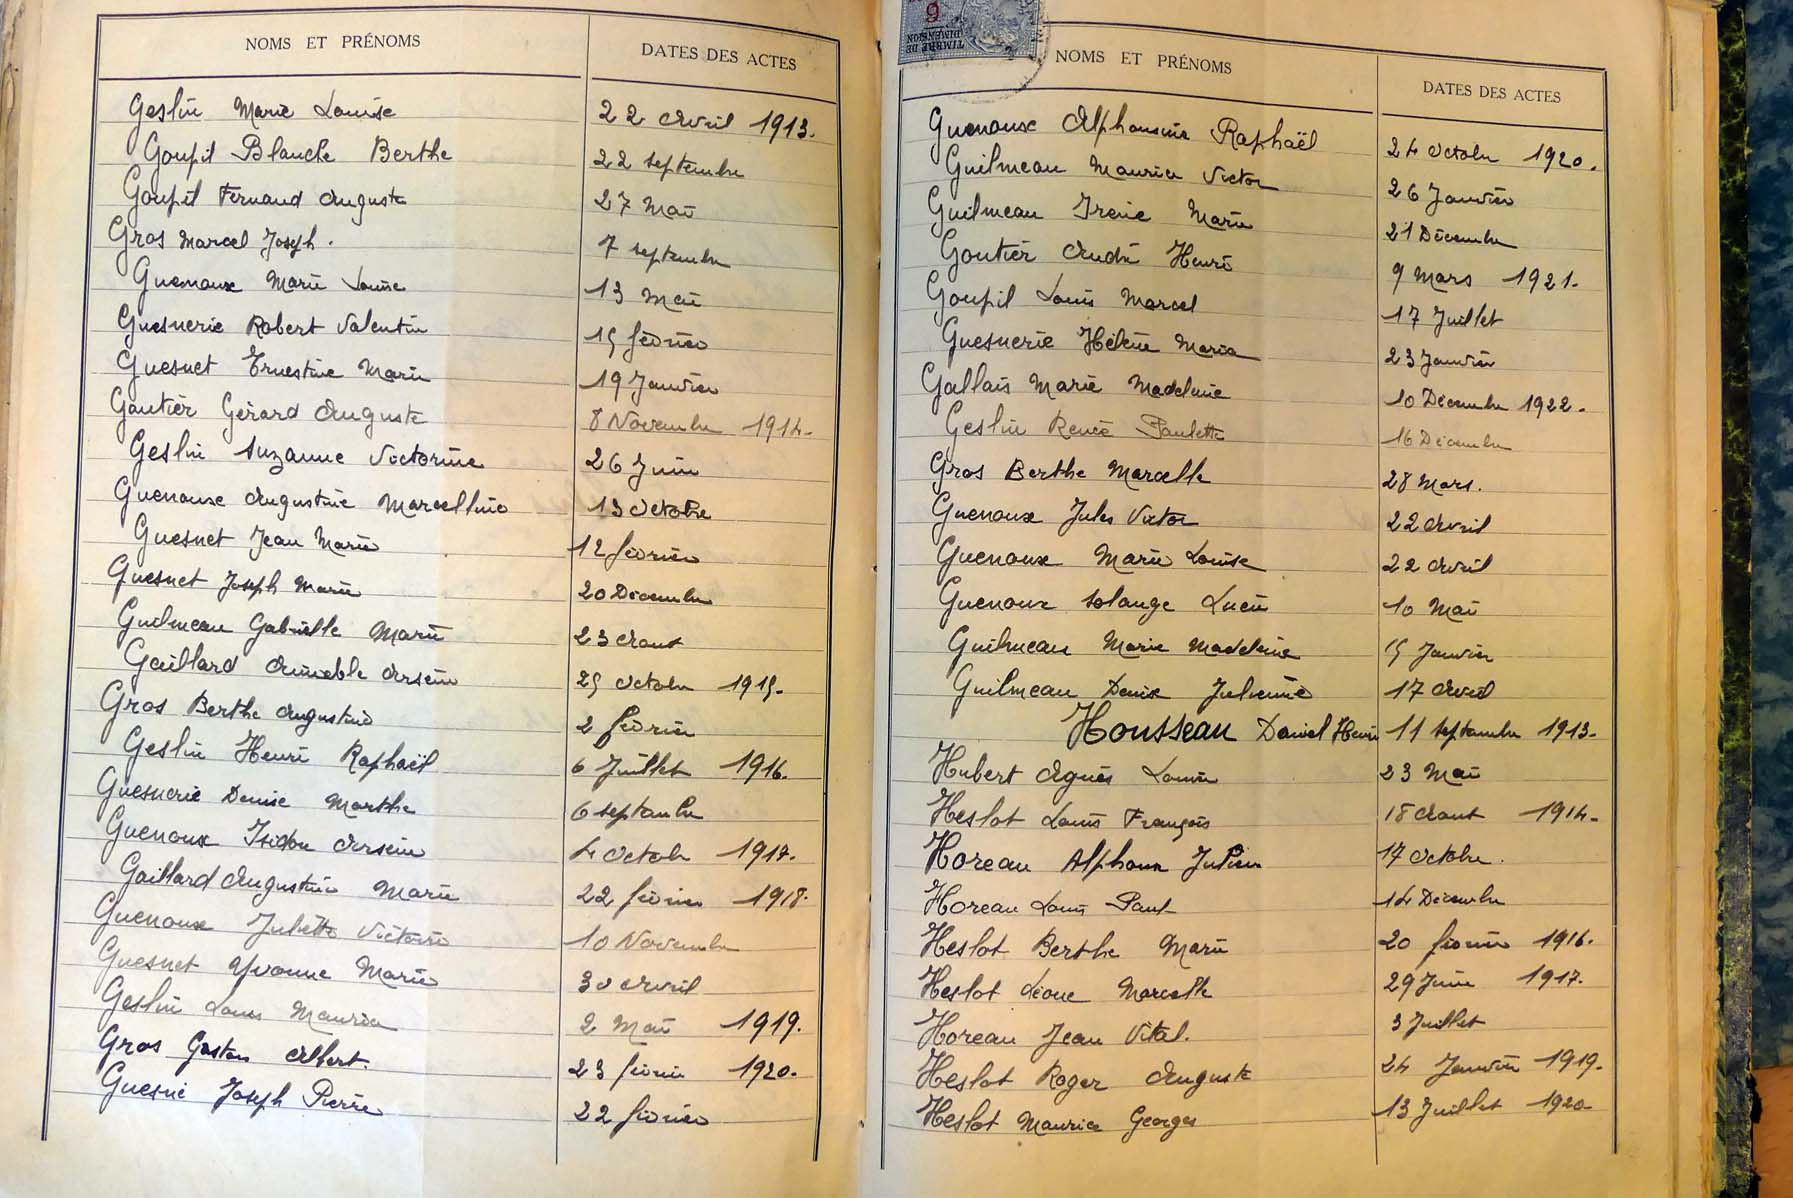 NOMS ET PRÉNOMS DATES DES ACTES
Geslin Marie Louise 22 Avril 1913.
Goupil Blanche Berthe 22 septembre
Goupil Fernand Auguste 27 Mai
Gros Marcel Joseph. 7 septembre
Guenoux Marie Louise 13 Mai
Guesnerie Robert Valentin 15 février
Guesnet Ernestine Marie 19 Janvier
Gautier Gérard Auguste 8 Novembre 1914.
Geslin Suzanne Victorine 26 Juin
Guenoux Augustine Marcelline 13 Octobre
Guesnet Jean Marie 12 février
Guesnet Joseph Marie 20 Décembre
Guilmeau Gabrielle Marie 23 Aout
Gaillard Aimable Arsène 25 Octobre 1915.
Gros Berthe Augustine 2 février
Geslin Henri Raphaël 6 Juillet 1916.
Guesnerie Denise Marthe 6 septembre
Guenoux Isidore Arsène 4 Octobre 1917.
Gaillard Augustine Marie 22 février 1918.
Guenoux Juliette Victoire 10 Novembre
Guesnet Yvonne Marie 30 Avril
Geslin Louis Maurice 2 Mai 1919.
Gros Gaston Albert. 23 février 1920.
Guesné Joseph Pierre 22 février
9
TIMBRE DE
DIMENSION
NOMS ET PRÉNOMS DATES DES ACTES
Guenoux Alphonsine Raphaël 24 Octobre 1920.
Guilmeau Maurice Victor 26 Janvier
Guilmeau Irène Marie 21 Décembre
Gautier André Henri 9 Mars 1921.
Goupil Louis Marcel 17 Juillet
Guesnerie Hélène Maria 23 Janvier
Gallais Marie Madeleine 10 Décembre 1922.
Geslin Renée Paulette 16 Décembre
Gros Berthe Marcelle 28 Mars.
Guenoux Jules Victor 22 Avril
Guenoux Marie Louise 22 Avril
Guenoux Solange Lucie 10 Mai
Guilmeau Marie Madeleine 15 Janvier
Guilmeau Denise Julienne 17 Avril
Housseau Daniel Henri 11 septembre 1913.
Hubert Agnès Louise 23 Mai
Heslot Louis François 18 Aout 1914.
Horeau Alphonse Julien 17 Octobre.
Horeau Louis Paul 14 Décembre
Heslot Berthe Marie 20 février 1916.
Heslot Léone Marcelle 29 Juin 1917.
Horeau Jean Vital. 3 Juillet
Heslot Roger Auguste 24 Janvier 1919.
Heslot Maurice Georges 13 Juillet 1920.